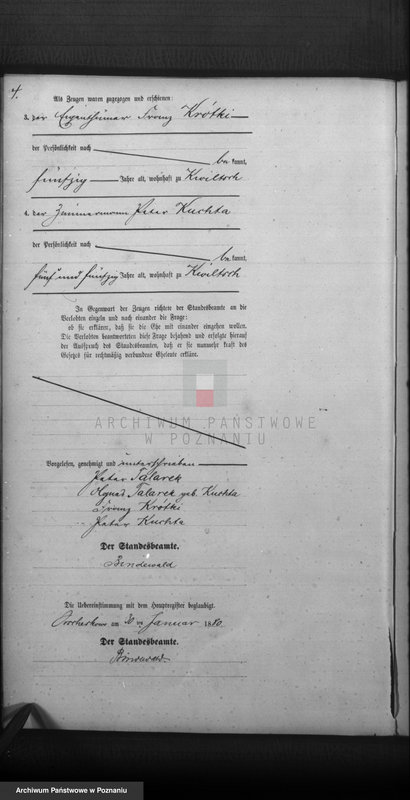 4.
Als Zeugen waren zugezogen und erschienen:
3. der Eigenthümer Franz Krótki
der Persönlichkeit nach
be kannt,
fünfzig Jahre alt, wohnhaft zu Kwiltsch
4. der Zimmermann Peter Kuchta
der Persönlichkeit nach
be kannt,
fünf und fünfzig Jahre alt, wohnhaft zu Kwiltsch
In Gegenwart der Zeugen richtete der Standesbeamte an die
Verlobten einzeln und nach einander die Frage:
ob sie erklären, daß sie die Ehe mit einander eingehen wollen.
Die Verlobten beantworteten diese Frage bejahend und erfolgte hierauf
der Ausspruch des Standesbeamten, daß er sie nunmehr kraft des
Gesetzes für rechtmäßig verbundene Eheleute erkläre.
ARCHIWUM PAŃSTWOWE
W POZNANIU
Vorgelesen, genehmigt und unterschrieben
Peter Talarek
Talarek geb. Kuchta
Franz Krótki
Peter Kuchta
Der Standesbeamte.
Bindewald
Die Uebereinstimmung mit dem Hauptregister beglaubigt.
am 30 ten Januar 1880.
Der Standesbeamte.
Bindewald
Archiwum Państwowe w Poznaniu